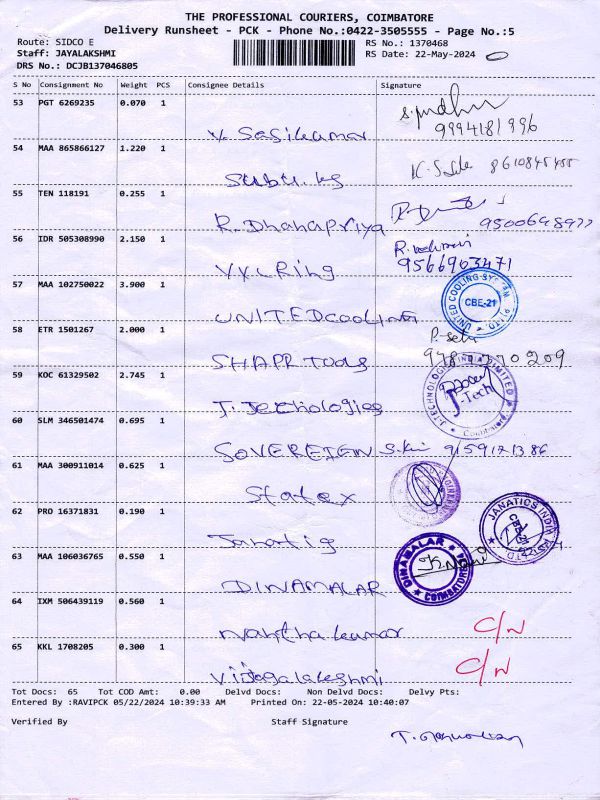 THE PROFESSIONAL COURIERS, COIMBATORE
Delivery Runsheet - PCK - Phone No.:0422-3505555 - Page No.:5
Route: SIDCO E RS No.: 1370468
Staff: JAYALAKSHMI RS Date: 22-May-2024
DRS No.: DCJB137046805
S No Consignment No Weight PCS Consignee Details Signature
53 PGT 6269235 0.070 1
V. Sasikumar 9994181996
54 MAA 865866127 1.220 1
Subu.kg
55 TEN 118191 0.255 1
R. Dhanapriya
56 IDR 505308990 2.150 1
VXL Ring 9566963471
57 MAA 102750022 3.900 1
UNITED COOLING UNITED COOLING CBE-21
58 ETR 1501267 2.000 1
SHAPR TOOLS
59 KOC 61329502 2.745 1
J. Technologies J-TECHNOLOGIES INDIA LIMITED Coimbatore
60 SLM 346501474 0.695 1
SOVEREIGN
61 MAA 300911014 0.625 1
Statex
62 PRO 16371831 0.190 1
JANATICS INDIA
63 MAA 106036765 0.550 1
DINAMALAR DINAMALAR COIMBATORE
64 IXM 506439119 0.560 1
Nanthakumar C/N
65 KKL 1708205 0.300 1
Vijayalakshmi C/N
Tot Docs: 65 Tot COD Amt: 0.00 Delvd Docs: Non Delvd Docs: Delvy Pts:
Entered By :RAVIPCK 05/22/2024 10:39:33 AM Printed On: 22-05-2024 10:40:07
Verified By Staff Signature